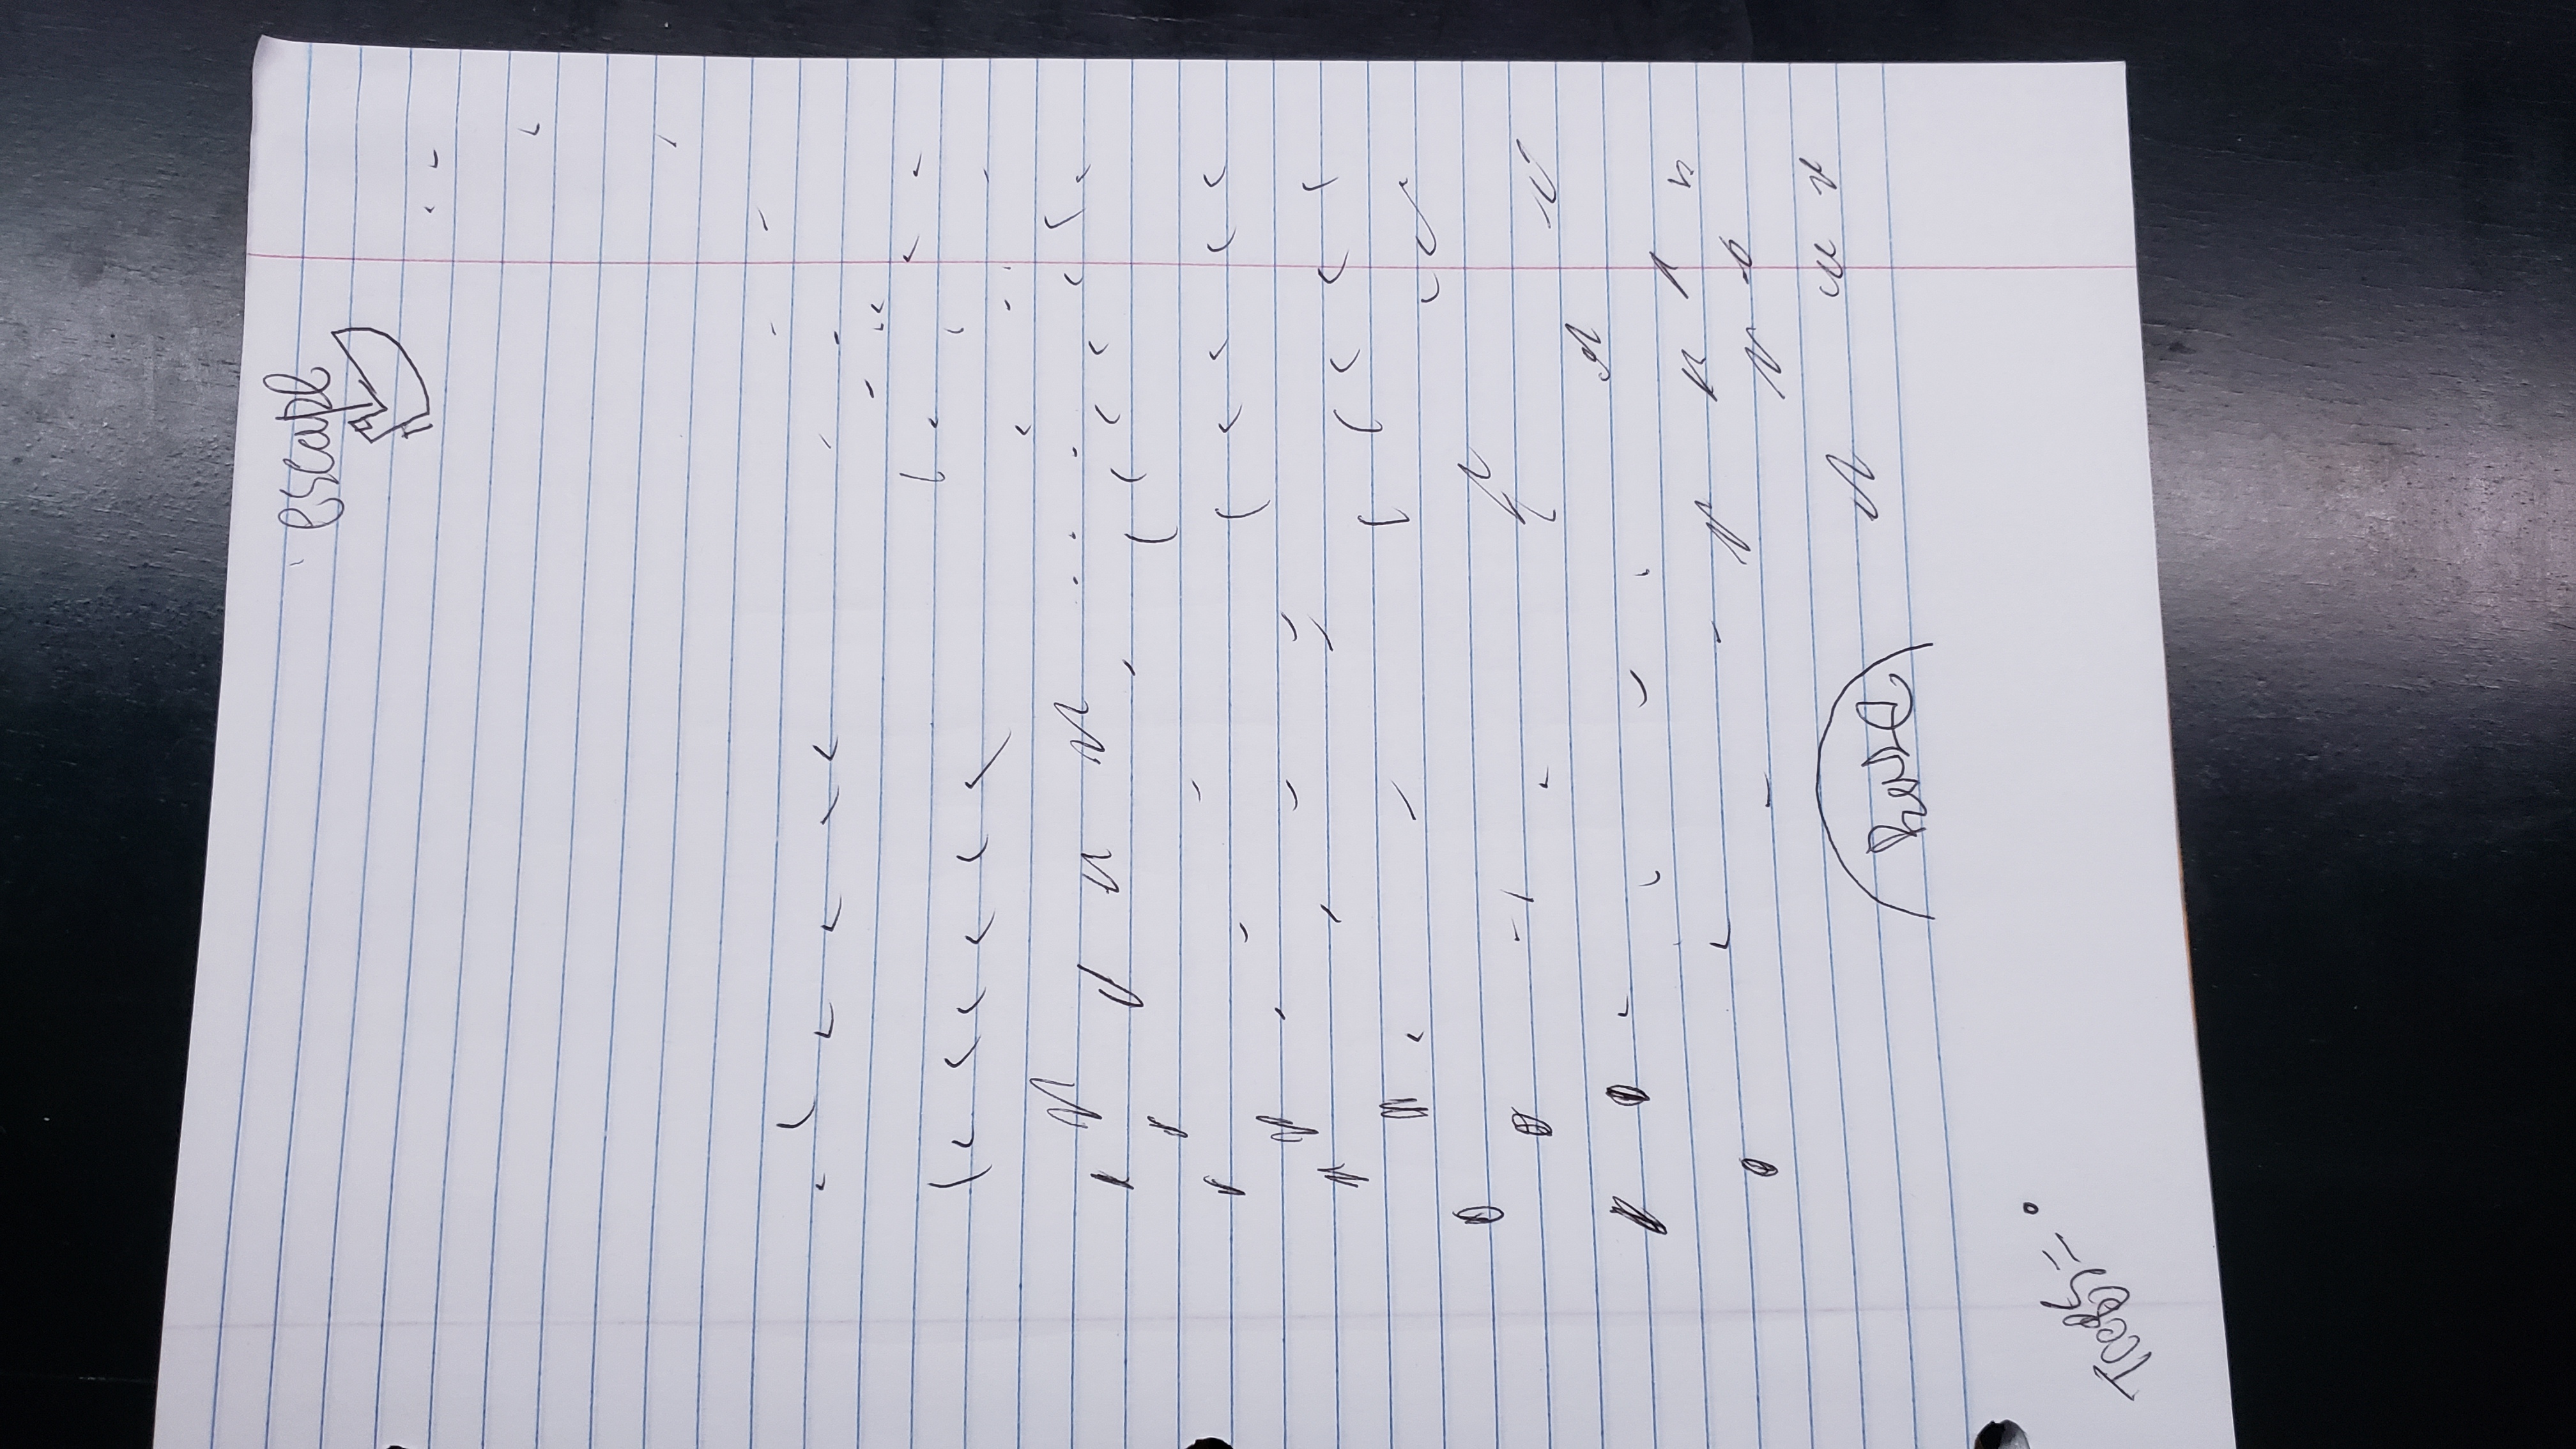 escape
Base
Trees = °